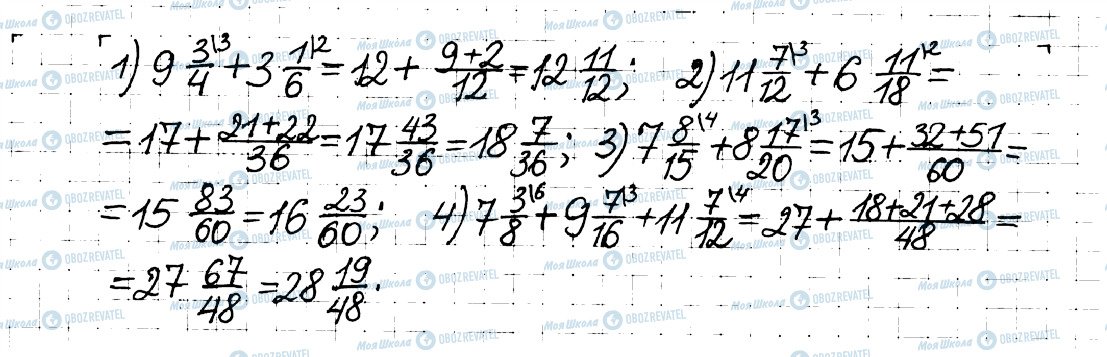 1) 9 3/4\3 + 3 1/6\2 = 12 + (9+2)/12 = 12 11/12; 2) 11 7/12\3 + 6 11/18\2 =
= 17 + (21+22)/36 = 17 43/36 = 18 7/36; 3) 7 8/15\4 + 8 17/20\3 = 15 + (32+51)/60 =
= 15 83/60 = 16 23/60; 4) 7 3/8\6 + 9 7/16\3 + 11 7/12\4 = 27 + (18+21+28)/48 =
= 27 67/48 = 28 19/48.